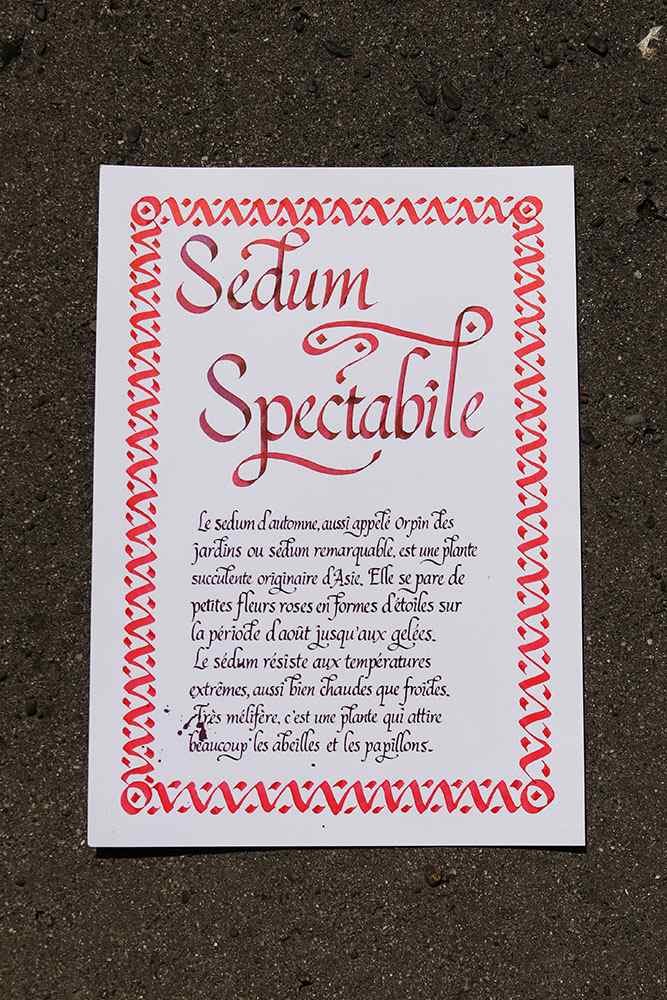 Sedum
Spectabile
Le sedum d'automne, aussi appelé Orpin des
jardins ou sédum remarquable, est une plante
succulente originaire d'Asie. Elle se pare de
petites fleurs roses en formes d'étoiles sur
la période d'août jusqu'aux gelées.
Le sédum résiste aux températures
extrêmes, aussi bien chaudes que froides.
Très mélifère, c'est une plante qui attire
beaucoup les abeilles et les papillons.